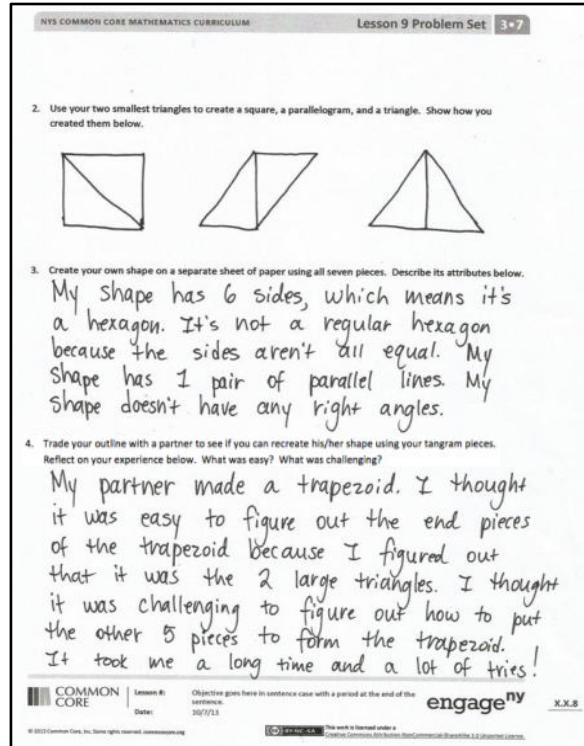 NYS COMMON CORE MATHEMATICS CURRICULUM
Lesson 9 Problem Set
3•7
2. Use your two smallest triangles to create a square, a parallelogram, and a triangle. Show how you
created them below.
3. Create your own shape on a separate sheet of paper using all seven pieces. Describe its attributes below.
My shape has 6 sides, which means it's
a hexagon. It's not a regular hexagon
because the sides aren't all equal. My
shape has 1 pair of parallel lines. My
shape doesn't have any right angles.
4. Trade your outline with a partner to see if you can recreate his/her shape using your tangram pieces.
Reflect on your experience below. What was easy? What was challenging?
My partner made a trapezoid. I thought
it was easy to figure out the end pieces
of the trapezoid because I figured out
that it was the 2 large triangles. I thought
it was challenging to figure out how to put
the other 5 pieces to form the trapezoid.
It took me a long time and a lot of tries!
COMMON
CORE
Lesson #:
Date:
Objective goes here in sentence case with a period at the end of the
sentence.
10/7/13
engage ny
X.X.8
© 2013 Common Core, Inc. Some rights reserved. commoncore.org
CC BY-NC-SA
This work is licensed under a
Creative Commons Attribution-NonCommercial-ShareAlike 3.0 Unported License.